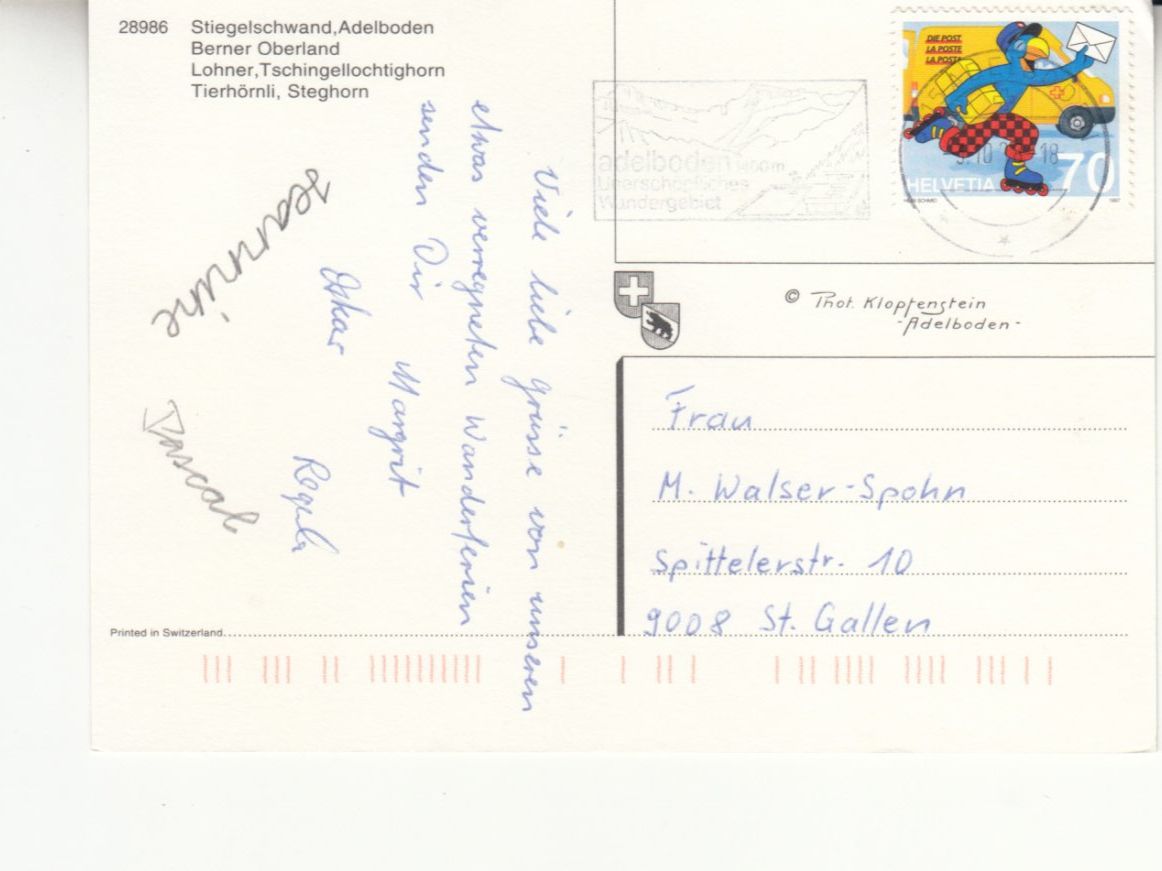 28986 Stiegelschwand,Adelboden
Berner Oberland
Lohner,Tschingellochtighorn
Tierhörnli, Steghorn
Viele liebe Grüsse von unseren
etwas verregneten Wanderferien
senden Dir Margrit
Oskar Regula
Jeannine
Pascal
Printed in Switzerland
adelboden
Unerschöpfliches
Wandergebiet
DIE POST
LA POSTE
LA POSTA
18
HELVETIA 70
1997
© Phot. Klopfenstein
-Adelboden-
Frau
M. Walser-Spohn
Spittelerstr. 10
9008 St. Gallen